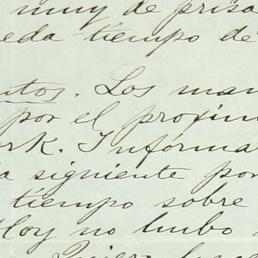 muy de prisa
eda tiempo de
ntos. Los man
por el proxim
rk. Informa
a siguiente por
tiempo sobre
Hoy no hubo
Quiero